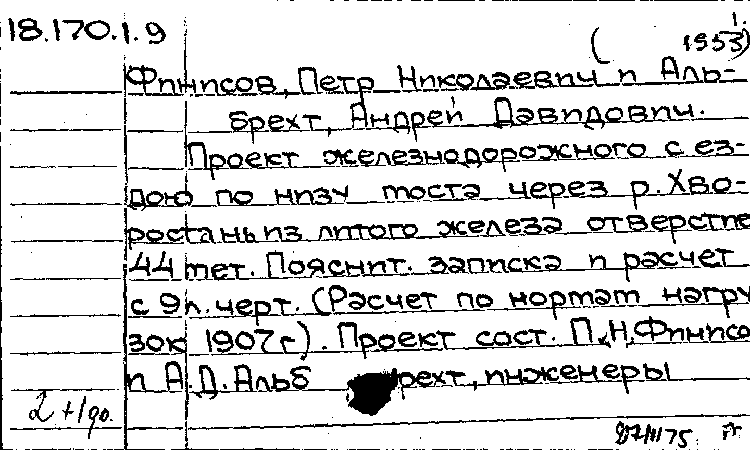 18.170.1.9
1.
( 1953)
Филипсов, Петр Николаевич и Аль-
брехт, Андрей Давидович.
Проект железнодорожного с ез-
дою по низу моста через р. Хво-
ростань из литого железа отверстие
44 мет. Пояснит. записка и расчет
с 9 л. черт. (Расчет по нормам нагру
зок 1907 г.). Проект сост. П.Н. Филипсо
и А.Д. Альб рехт, инженеры
2 + 1 др.